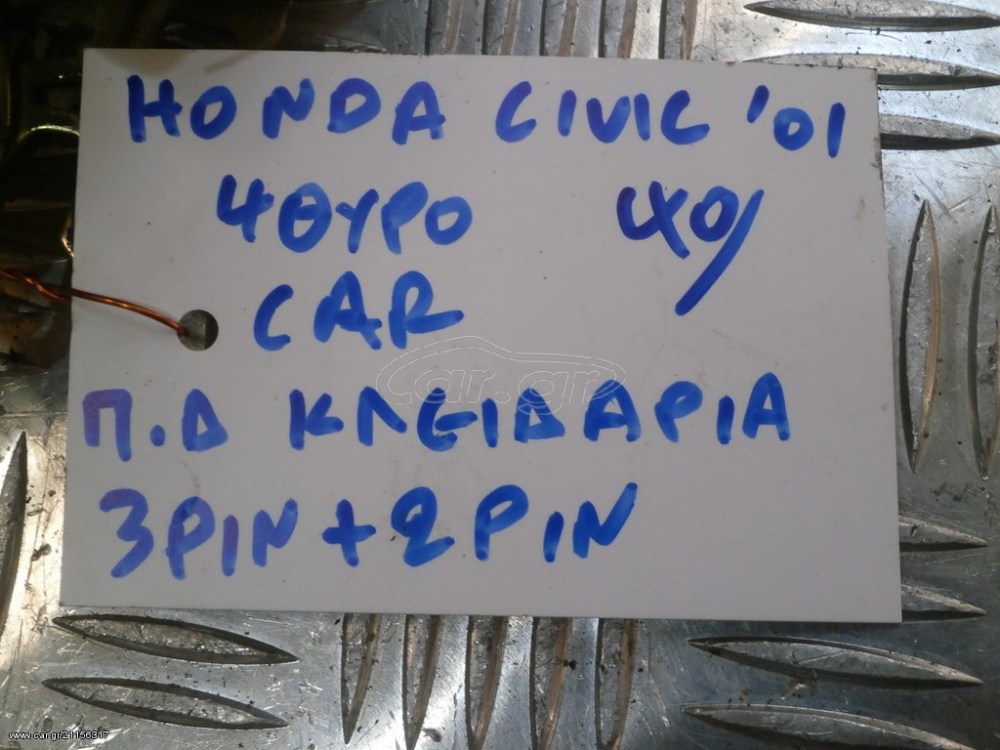 HONDA CIVIC '01
4ΘΥΡΟ 40/
CAR
Π.Δ ΚΛΕΙΔΑΡΙΑ
3PIN+2PIN
car.gr
www.car.gr/21156317